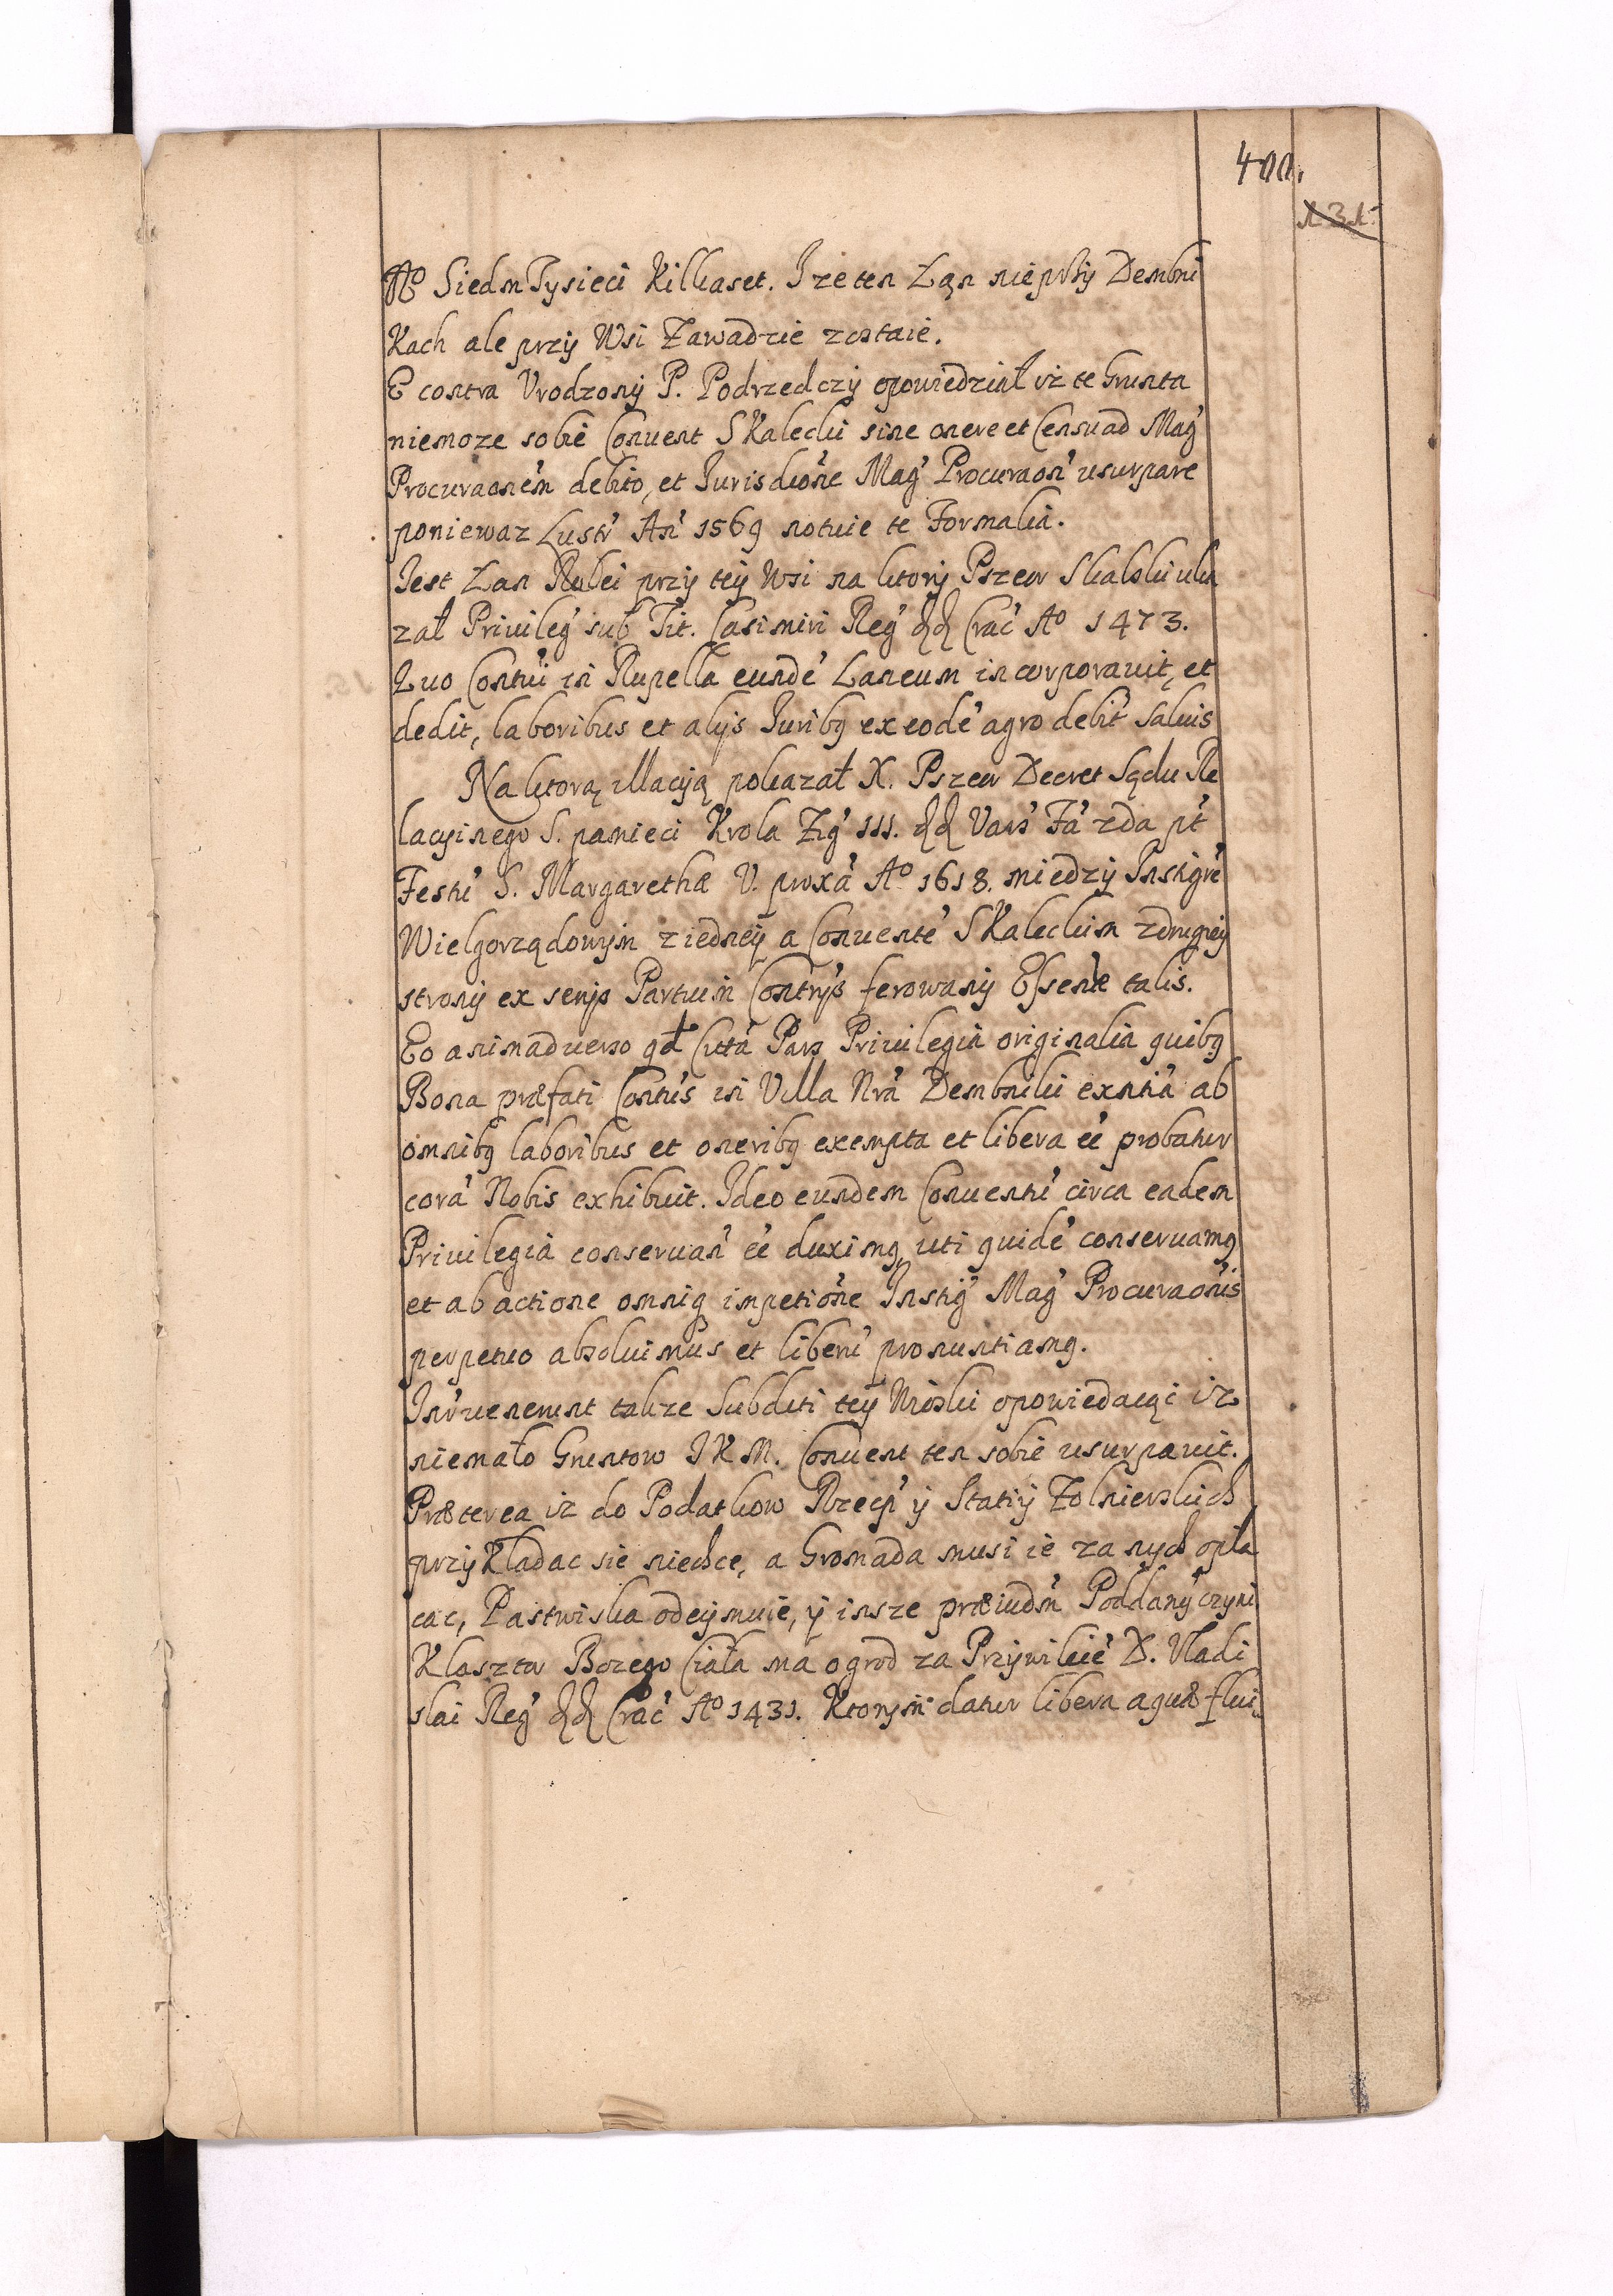 400.
131.
Aº Siedm Tysieci Kilkaset. Ize ten Łąn nie przÿ Dembni
Kach ale przÿ Wsi Zawadzie zostaie.
E contra Vrodzonÿ P. Podrzedczÿ opowiedział iż te Grunta
niemoze sobie Conuent SKalecki sine onere et Censu ad Mag̃
Procuraonẽm debito, et Jurisdiõne Mag̃ Procuraoñ usurpare
poniewaz Lustr̃ Añ 1569 notuie te Formalia.
Jest Łan Rolei przÿ teÿ Wsi na ktorÿ Pzeor Skalski uka
zał Priuileg̃ sub Tit. Casimiri Reg̃ dd Crac̃ Aº 1473.
Quo Contũi in Rupella eundẽ Laneum incorporauit, et
dedit, laboribus et alÿs Juribq ex eodẽ agro debit̃ saluis
Na ktorą illacÿą pokazał X. Pzeor Decret Sądu Re
lacyinego S. pamieci Krola Zig̃ III. dd Vars̃ Fã 2da pt̃
Festũ S. Margarethæ V. proxã Aº 1618. miedzÿ Instigr̃e
Wielgorządowÿm z iedneÿ a Conuentẽ SKaleckim z drugieÿ
stronÿ ex senso Partium Contrÿs ferowanÿ Essente talis.
Eo animaduerso qd Citta Pars Priuilegia originalia quibq
Bona præfati Contũs in Villa Nrã Dembniki exntĩa ab
omnibq laboribus et oneribq exempta et libera eẽ probatur
corã Nobis exhibuit. Ideo eundem Conuentũ circa eadem
Priuilegia conseruañ eẽ duximq, uti quidẽ conseruamq
et ab actione omniq impetiõne Instig̃ Mag̃ Procuraoñis
perpetuo absoluimus et liberũ pronuntiamq.
Interuenerunt takze Subditi teÿ Wioski opowiedaiąc iz
niemało Gruntow JKM. Conuent ten sobie usurpauit.
Præterea iz do Podatkow Rzecp̃ ÿ Statiÿ Zołnierskich
przÿKładac sie niechce, a Gromada musi ie za nych opła
cac, Pastwiska odeÿmuie, ÿ insze præiudm̃ Poddanÿ czyni
Klasztor Bozego Ciała ma ogrod za Prziwileiẽ D. Vladi
slai Reg̃ dd Crac̃ Aº 1431. Ktorym datur libera aquæ flui